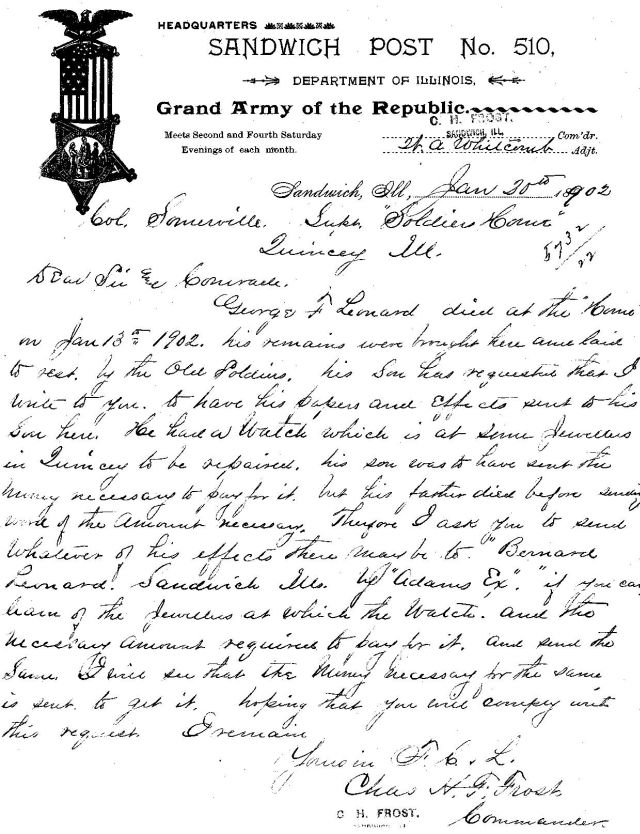 HEADQUARTERS
SANDWICH POST No. 510,
DEPARTMENT OF ILLINOIS,
Grand Army of the Republic.
C. H. FROST.
SANDWICH, ILL.
Com'dr.
Meets Second and Fourth Saturday
Evenings of each month.
W. A Whitcomb Adjt.
Sandwich, Ill., Jan 20th 1902
Col. Somerville. Supt. "Soldiers Home"
Quincey Ill.
5732/22
Dear Sir & Comrade.
George F Leonard died at the "Home
on Jan 13th 1902. his remains were brought here and laid
to rest. by the Old Soldiers. his Son has requested that I
write to you. to have his papers and Effects sent to his
Son here. He had a Watch which is at some Jewellers
in Quincey to be repaired. his son was to have sent the
Money necessary to pay for it. but his father died before sending
word of the Amount necessary. Therfore I ask you to send
Whatever of his effects there may be to. "Bernard
Leonard". Sandwich Ills. by "Adams Ex". "if you can
learn of the Jewellers at which the Watch. and the
necessary amount required to pay for it. and send the
Same. I will see that the Money necessary for the same
is sent to get it. hoping that you will comply with
this request I remain
Yours in F. C. L.
Chas H. F. Frost
C H. FROST. Commander.